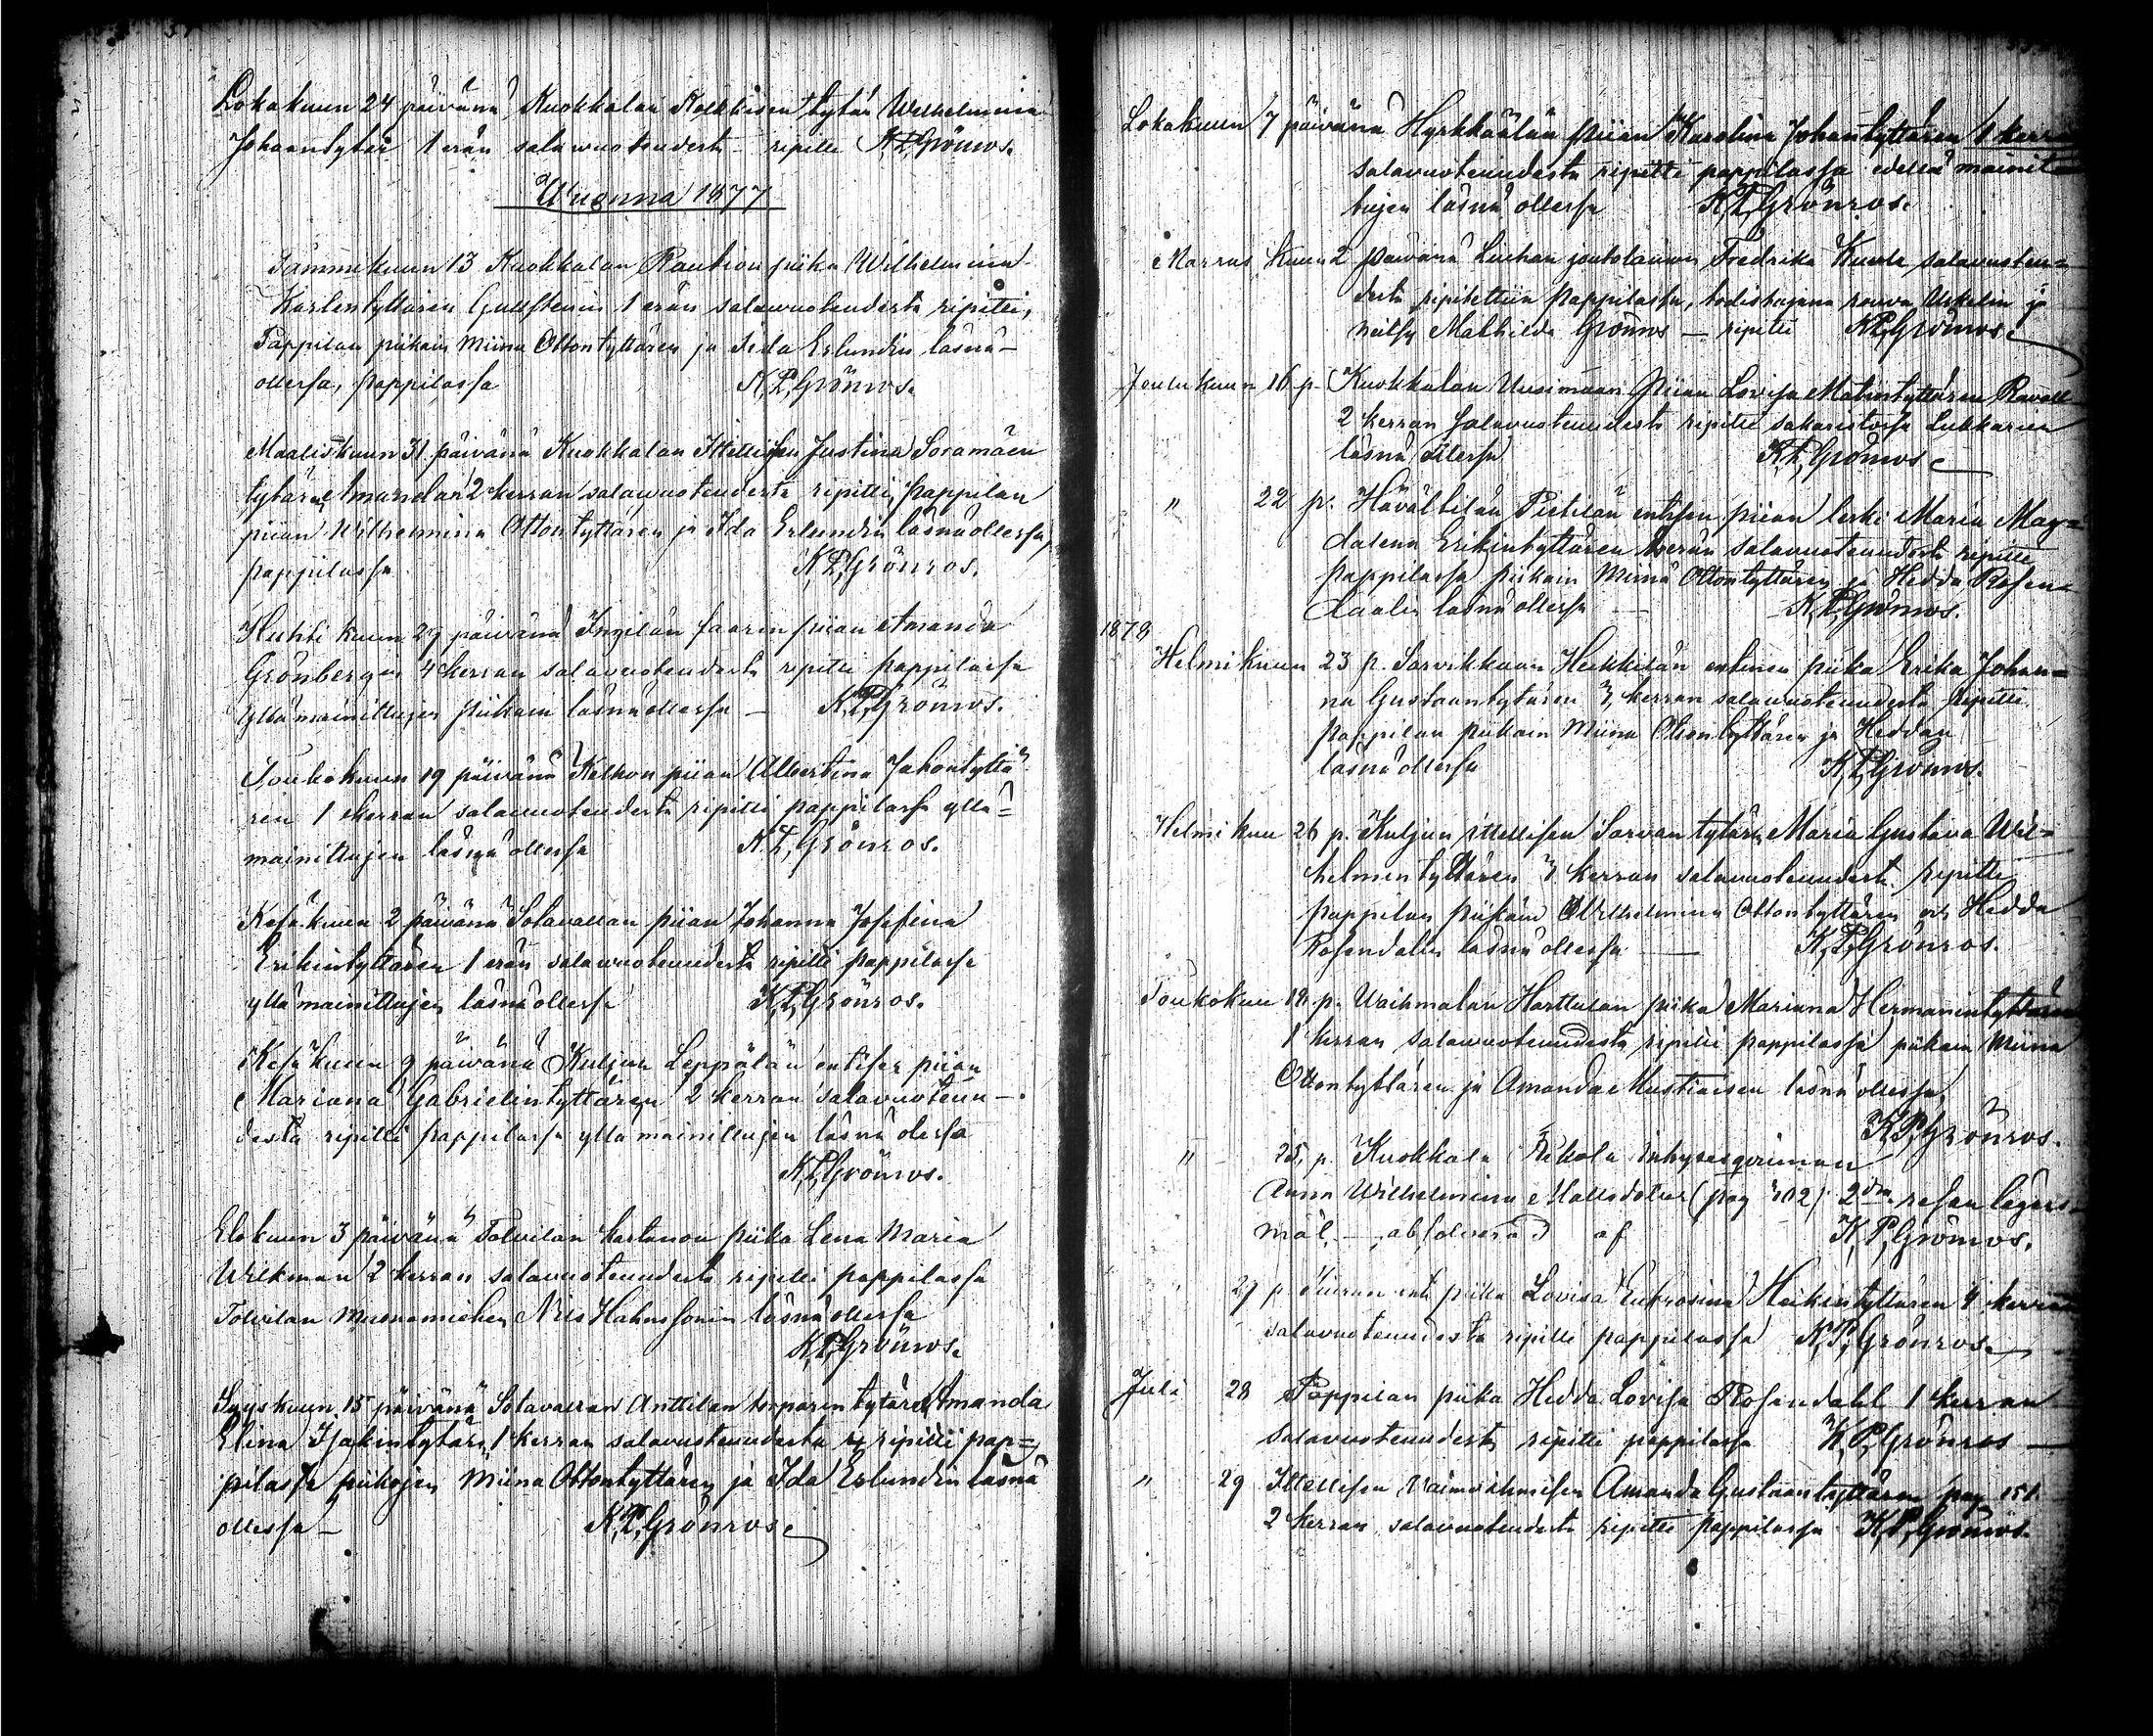 Lokakuun 24 päivänä Kuokkalan tytön Wilhelmiina
Johaantytär 1 erän salawuoteudesta ripitti K.P.Grönros.
Wuonna 1877
Tammikuun 13 Kuokkalan Raution piika Wilhelmiina
Karlentyttären 1 erän salawuoteudesta ripitti,
Pappilan piikain Miina Ottontyttären ja Ida Erlundin läsnä-
ollessa, pappilassa K.P.Grönros.
Maaliskuun 31 päivänä Kuokkalan Itsellisen Justina Soramäen
tytären Amandan 2 kerran salawuoteudesta ripitti, pappilan
piian Wilhelmina Ottontyttären ja Ida Erlundin läsnäollessa,
pappilassa K.P.Grönros.
Huhti kuun 29 päivänä Ingilän piian Amanda
Grönbergin 4 kerran salavuoteudesta ripitti pappilassa
yllämainittujen piikain läsnäollessa — K.P.Grönros.
Toukokuun 19 päivänä Kelhon piian Albertina Jahontyttä-
ren 1 kerran salavuoteudesta ripitti pappilassa yllä=
mainittujen läsnä ollessa K.P.Grönros.
Kesäkuun 2 päivänä Sotavallan piian Johanna Josefina
Erikintyttären 1 erän salawuoteudesta ripitti pappilassa
yllämainittujen läsnäollessa K.P.Grönros.
Kesäkuun 9 päivänä Kuljun Leppälän entisen piian
Mariana Gabrielintyttären 2 kerran salavuoteu-
desta ripitti pappilassa yllämainittujen läsnä olessa
K.P.Grönros.
Elokuun 3 päivänä Tolvilan kartanon piika Lena Maria
Wilkman 2 kerran salavuoteudesta ripitti pappilassa
Tolvilan Muonamiehen Nils läsnäollessa
K.P.Grönros.
Syyskuun 15 päivänä Sotavallan Anttilan torparin tytären Amanda
Elina Isakintytären 1 kerran salavuoteudesta ripitti pap=
pilassa piikojen Miina Ottontyttären ja Ida Erlundin läsnä
ollessa — K.P.Grönros.
Lokakuun 7 päivänä Hyrkkäälän piian Karolina Johantyttären 1 kerran
salavuoteudesta ripitti pappilassa edellä mainit=
tujen läsnä ollessa K.P.Grönros.
Marras kuun 2 päivänä Liuhan Fredrika salavuoteu=
desta ripitettiin pappilassa, todistajana rouva ja
neitsy Mathilda Grönros — ripitti K.P.Grönros.
Joulukuun 16 p. Kuokkalan Uusimaan piian Lovisa Matintyttären
2 kerran salavuoteudesta ripitti sakaristossa Lukkarien
läsnä ollessa K.P.Grönros
" 22 p. entisen piian leski Maria Mag=
dalena Erikintyttären erän salavuoteudesta ripitti
pappilassa piikain Miina Ottontyttären ja Hedda Rosen-
daalin läsnäollessa — K.P.Grönros.
1878
Helmikuun 23 p. Sarvikkaan Heikkilän entinen piika Erika Johan=
na Gustaantytären 3 kerran salawuoteudesta ripitti
pappilan piikain Miina Ottontyttären ja Heddan
läsnäollessa K.P.Grönros.
Helmikuu 26 p. Kuljun Itsellisen Sarvan tytären Maria Gustava Wil=
helmintyttären 3 kerran salavuoteudesta ripitti
pappilan piikain Wilhelmina Ottontyttären och Hedda
Rosendalin läsnäollessa — K.P.Grönros.
Toukokuu 19. p. Waihmalan Harttulan piika Mariana Hermanintyttären
1 kerran salawuoteudesta ripitti pappilassa piikain Miina
Ottontyttären ja Amanda Mustiaisen läsnä ollessa,
K.P.Grönros.
" 25. p. Kuokkala Rekola Inhyseqvinnan
Anna Wilhelmina Mattsdotter (pag 302) 2dra resan lägers-
mål — absolverad af K.P.Grönros.
27 p piika Lovisa Eufrosina Heikintyttären 4 kerran
salavuoteudesta ripitti pappilassa K.P.Grönros.
Juli 28 Pappilan piika Hedda Lovisa Rosendahl 1 kerran
salavuoteudesta ripitti pappilassa K.P.Grönros —
" 29 Itsellisen Vaimoihmisen Amanda Gustaantyttären pag 151.
2 kerran salavuoteudesta ripitti pappilassa K.P.Grönros.